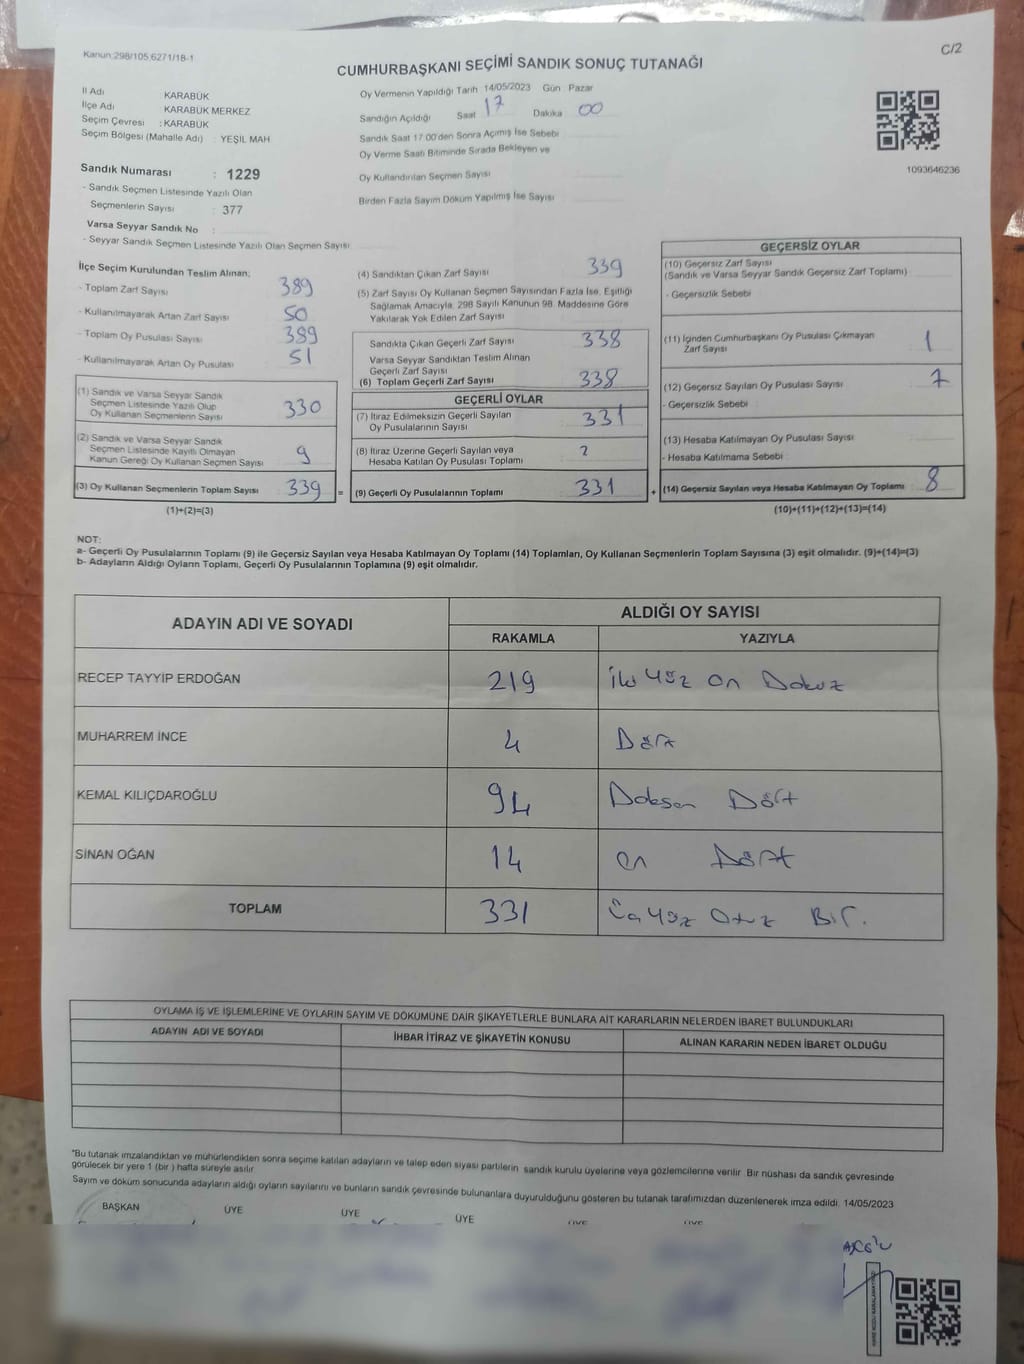 Kanun:298/105,6271/18-1
C/2
CUMHURBAŞKANI SEÇİMİ SANDIK SONUÇ TUTANAĞI
İl Adı KARABÜK
İlçe Adı KARABÜK MERKEZ
Seçim Çevresi : KARABÜK
Seçim Bölgesi (Mahalle Adı) : YEŞİL MAH
Sandık Numarası : 1229
- Sandık Seçmen Listesinde Yazılı Olan
Seçmenlerin Sayısı : 377
Varsa Seyyar Sandık No :
- Seyyar Sandık Seçmen Listesinde Yazılı Olan Seçmen Sayısı:
Oy Vermenin Yapıldığı Tarih 14/05/2023 Gün Pazar
Sandığın Açıldığı Saat 17 Dakika 00
Sandık Saat 17:00'den Sonra Açımış İse Sebebi
Oy Verme Saati Bitiminde Sırada Bekleyen ve
Oy Kullandırılan Seçmen Sayısı
Birden Fazla Sayım Döküm Yapılmış İse Sayısı
1093646236
İlçe Seçim Kurulundan Teslim Alınan;
- Toplam Zarf Sayısı 389
- Kullanılmayarak Artan Zarf Sayısı 50
- Toplam Oy Pusulası Sayısı 389
- Kullanılmayarak Artan Oy Pusulası 51
(1) Sandık ve Varsa Seyyar Sandık
Seçmen Listesinde Yazılı Olup
Oy Kullanan Seçmenlerin Sayısı 330
(2) Sandık ve Varsa Seyyar Sandık
Seçmen Listesinde Kayıtlı Olmayan
Kanun Gereği Oy Kullanan Seçmen Sayısı 9
(3) Oy Kullanan Seçmenlerin Toplam Sayısı 339 =
(1)+(2)=(3)
(4) Sandıktan Çıkan Zarf Sayısı 339
(5) Zarf Sayısı Oy Kullanan Seçmen Sayısından Fazla İse, Eşitliği
Sağlamak Amacıyla, 298 Sayılı Kanunun 98. Maddesine Göre
Yakılarak Yok Edilen Zarf Sayısı
Sandıkta Çıkan Geçerli Zarf Sayısı 338
Varsa Seyyar Sandıktan Teslim Alınan
Geçerli Zarf Sayısı
(6) Toplam Geçerli Zarf Sayısı 338
GEÇERLİ OYLAR
(7) İtiraz Edilmeksizin Geçerli Sayılan
Oy Pusulalarının Sayısı 331
(8) İtiraz Üzerine Geçerli Sayılan veya
Hesaba Katılan Oy Pusulası Toplamı
(9) Geçerli Oy Pusulalarının Toplamı 331 +
GEÇERSİZ OYLAR
(10) Geçersiz Zarf Sayısı
(Sandık ve Varsa Seyyar Sandık Geçersiz Zarf Toplamı)
- Geçersizlik Sebebi
(11) İçinden Cumhurbaşkanı Oy Pusulası Çıkmayan
Zarf Sayısı 1
(12) Geçersiz Sayılan Oy Pusulası Sayısı 7
- Geçersizlik Sebebi
(13) Hesaba Katılmayan Oy Pusulası Sayısı
- Hesaba Katılmama Sebebi
(14) Geçersiz Sayılan veya Hesaba Katılmayan Oy Toplamı 8
(10)+(11)+(12)+(13)=(14)
NOT:
a- Geçerli Oy Pusulalarının Toplamı (9) ile Geçersiz Sayılan veya Hesaba Katılmayan Oy Toplamı (14) Toplamları, Oy Kullanan Seçmenlerin Toplam Sayısına (3) eşit olmalıdır. (9)+(14)=(3)
b- Adayların Aldığı Oyların Toplamı, Geçerli Oy Pusulalarının Toplamına (9) eşit olmalıdır.
ADAYIN ADI VE SOYADI
ALDIĞI OY SAYISI
RAKAMLA YAZIYLA
RECEP TAYYİP ERDOĞAN 219 iki yüz on Dokuz
MUHARREM İNCE 4 Dört
KEMAL KILIÇDAROĞLU 94 Doksan Dört
SİNAN OĞAN 14 on Dört
TOPLAM 331 Üç yüz Otuz Bir.
OYLAMA İŞ VE İŞLEMLERİNE VE OYLARIN SAYIM VE DÖKÜMÜNE DAİR ŞİKAYETLERLE BUNLARA AİT KARARLARIN NELERDEN İBARET BULUNDUKLARI
ADAYIN ADI VE SOYADI İHBAR İTİRAZ VE ŞİKAYETİN KONUSU ALINAN KARARIN NEDEN İBARET OLDUĞU
*Bu tutanak imzalandıktan ve mühürlendikten sonra seçime katılan adayların ve talep eden siyasi partilerin sandık kurulu üyelerine veya gözlemcilerine verilir. Bir nüshası da sandık çevresinde
görülecek bir yere 1 (bir) hafta süreyle asılır.
Sayım ve döküm sonucunda adayların aldığı oyların sayılarını ve bunların sandık çevresinde bulunanlara duyurulduğunu gösteren bu tutanak tarafımızdan düzenlenerek imza edildi. 14/05/2023
BAŞKAN ÜYE ÜYE ÜYE ÜYE ÜYE